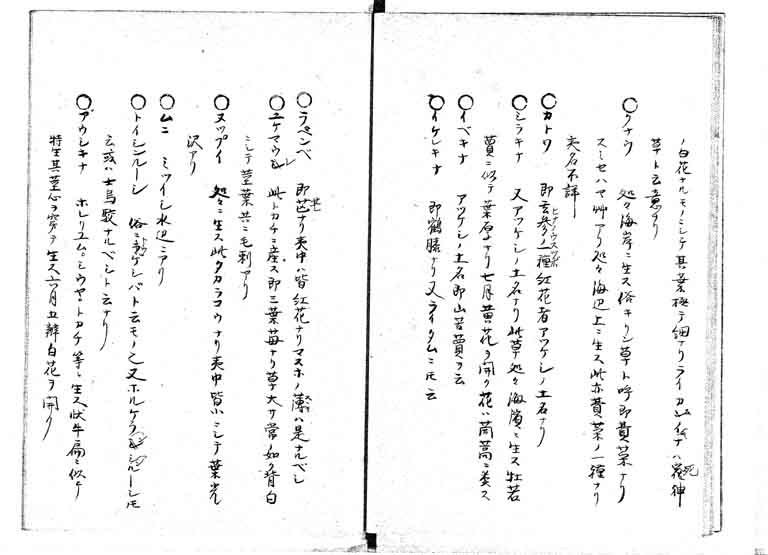 ノ白花ナルモノニシテ其葉極テ細ナリライカ
草ト云意ナリ
○クナウ 処々海岸ニ生ス俗キリン草ト呼即費菜ナリ
スミセハマ艸アリ処々海辺上ニ生ス此亦費菜ノ一種ナリ
夷名不詳
○カトワ 即玄参ノ一種紅花者アツケシノ土名ナリ
ヒナノウスツボ
○シラキナ 又アツケシノ土名ナリ此草処々海濱ニ生ス牡若
蕒ニ似テ葉厚ナリ七月黄花ヲ開ク花ハ茼蒿ニ类ス
○イベキナ アツケシノ土名即山苦蕒ヲ云
○イケレキナ 即鶴膝ナリ又ライタムニモ云
○ラペンペ 即芭ナリ夷中ハ皆紅花ナリマスホノ薄ハ是ナルベシ
芒
○ユケマウレ 此トカチニ産ス即三葉苺ナリ草大サ常ノ如ク背白
ニシテ茎葉共ニ毛刺アリ
○ヌップイ 処々ニ生ス此タカラコウナリ夷中皆小ニシテ葉光
沢アリ
○ムニ ミツイシ水辺ニアリ
○トイシンルーシ 俗ニケシバト云モノ又ホルケ
云或ハ土馬騣ナルベシト云ナリ
○プウシキナ ホレリユム。シウヤ。トカチ等ニ生ス状牛扁ニ似テ
特生其茎心ヲ穿テ生ス六月五瓣白花ヲ開ク